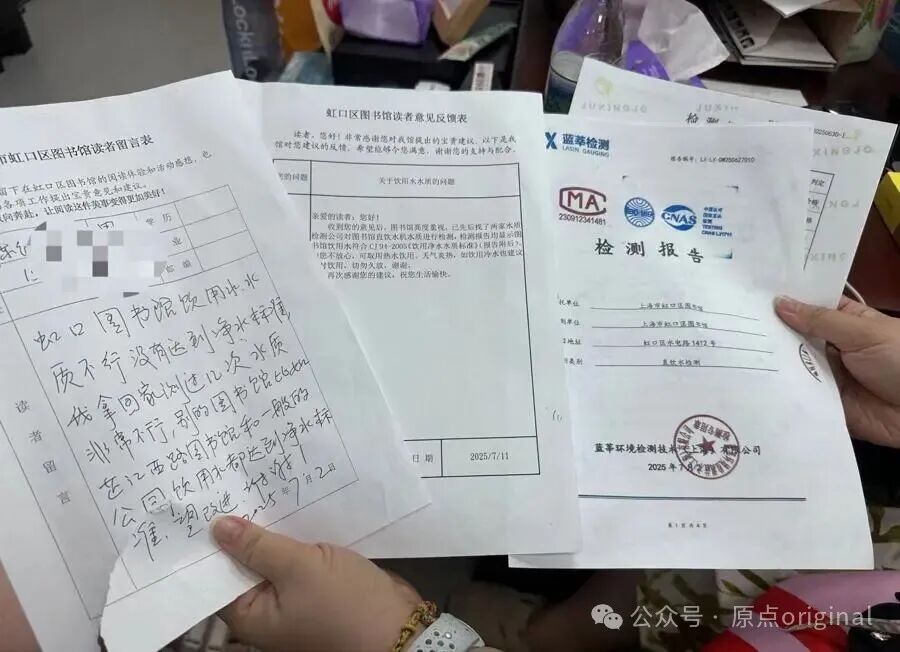 市虹口区图书馆读者留言表
留下在虹口区图书馆的阅读体验和活动感想，也
各项工作提出宝贵意见和建议。
双向奔赴，让阅读这件美事变得更加美好！
男
学历
业
邮编
读者留言
虹口图书馆饮用水，水
质不行没有达到净水标准
我拿回家测过几次，水质
非常不行，别的图书馆比如
芷江西路图书馆和一般的
公园饮用水都达到净水标
准，望改进 谢谢！
2025年7月2
虹口区图书馆读者意见反馈表
读者，您好！非常感谢您对我馆提出的宝贵建议，以下是我
馆对您建议的反馈，希望能够令您满意，谢谢您的支持与配合。
您的问题
关于饮用水水质的问题
亲爱的读者：您好！
收到您的意见后，图书馆高度重视，已先后找了两家水质
检测公司对图书馆直饮水机水质进行检测，检测报告均显示图
书馆饮用水符合CJ94-2005《饮用净水水质标准》（报告附后），
您不放心，可取用热水饮用，天气炎热，如饮用冷水也建议
饮用，切勿久放，谢谢。
再次感谢您的建议，祝您生活愉快。
日期
2025/7/11
蓝莘检测
LASIN GAUGING
报告编号：LX-LX-GW250627010
MA
230912341481
ilac-MRA
CNAS
中国认可
国际互认
检测
TESTING
检测报告
托单位
上海市虹口区图书馆
制单位
上海市虹口区图书馆
地址
虹口区水电路1412号
类别
直饮水检测
蓝莘环境检测技术（上海）有限公司
2025年7月
检测专用章
第1页共4页
检
公众号·原点original